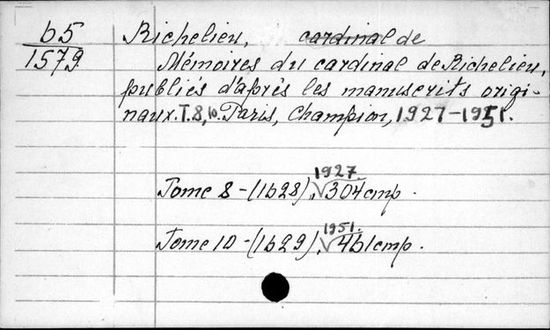 b5
1579
Richelieu, cardinal de
Mémoires du cardinal de Richelieu,
publiés d'après les manuscrits origi-
naux. T. 8, 10. Paris, Champion, 1927-1951.
1927.
Tome 8-(1628), √304 cmp.
1951.
Tome 10-(1629), √461 cmp.